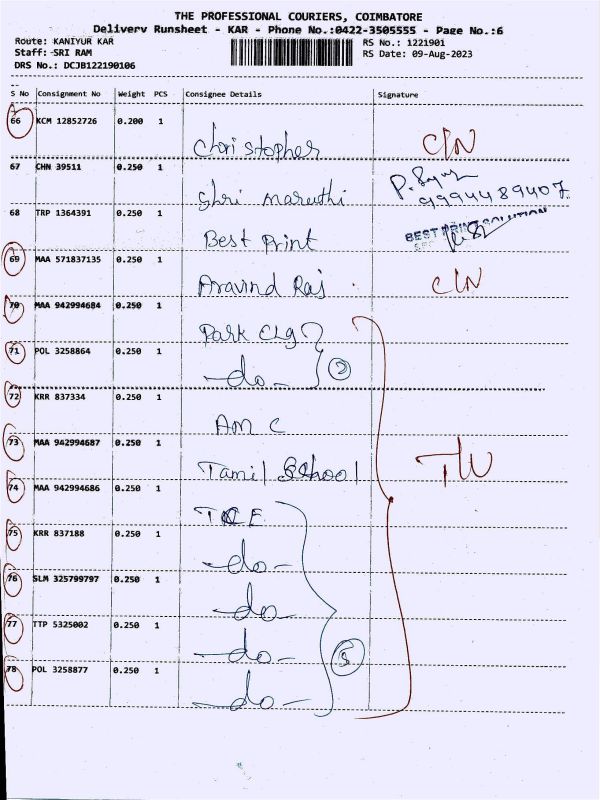 THE PROFESSIONAL COURIERS, COIMBATORE
Delivery Runsheet - KAR - Phone No.:0422-3505555 - Page No.:6
Route: KANIYUR KAR RS No.: 1221901
Staff: SRI RAM RS Date: 09-Aug-2023
DRS No.: DCJB122190106
S No Consignment No Weight PCS Consignee Details Signature
66 KCM 12852726 0.200 1
Christopher C/N
67 CHN 39511 0.250 1
Shri Maruthi 9994489407
68 TRP 1364391 0.250 1
Best Print BEST PRINT SOLUTION
69 MAA 571837135 0.250 1
Aravind Raj C/N
70 MAA 942994684 0.250 1
Park Clg
71 POL 3258864 0.250 1
-do- 2
72 KRR 837334 0.250 1
AM C
73 MAA 942994687 0.250 1
Tamil School
74 MAA 942994686 0.250 1
TCE
75 KRR 837188 0.250 1
-do-
76 SLM 325799797 0.250 1
-do-
77 TTP 5325002 0.250 1
-do- 5
78 POL 3258877 0.250 1
-do-